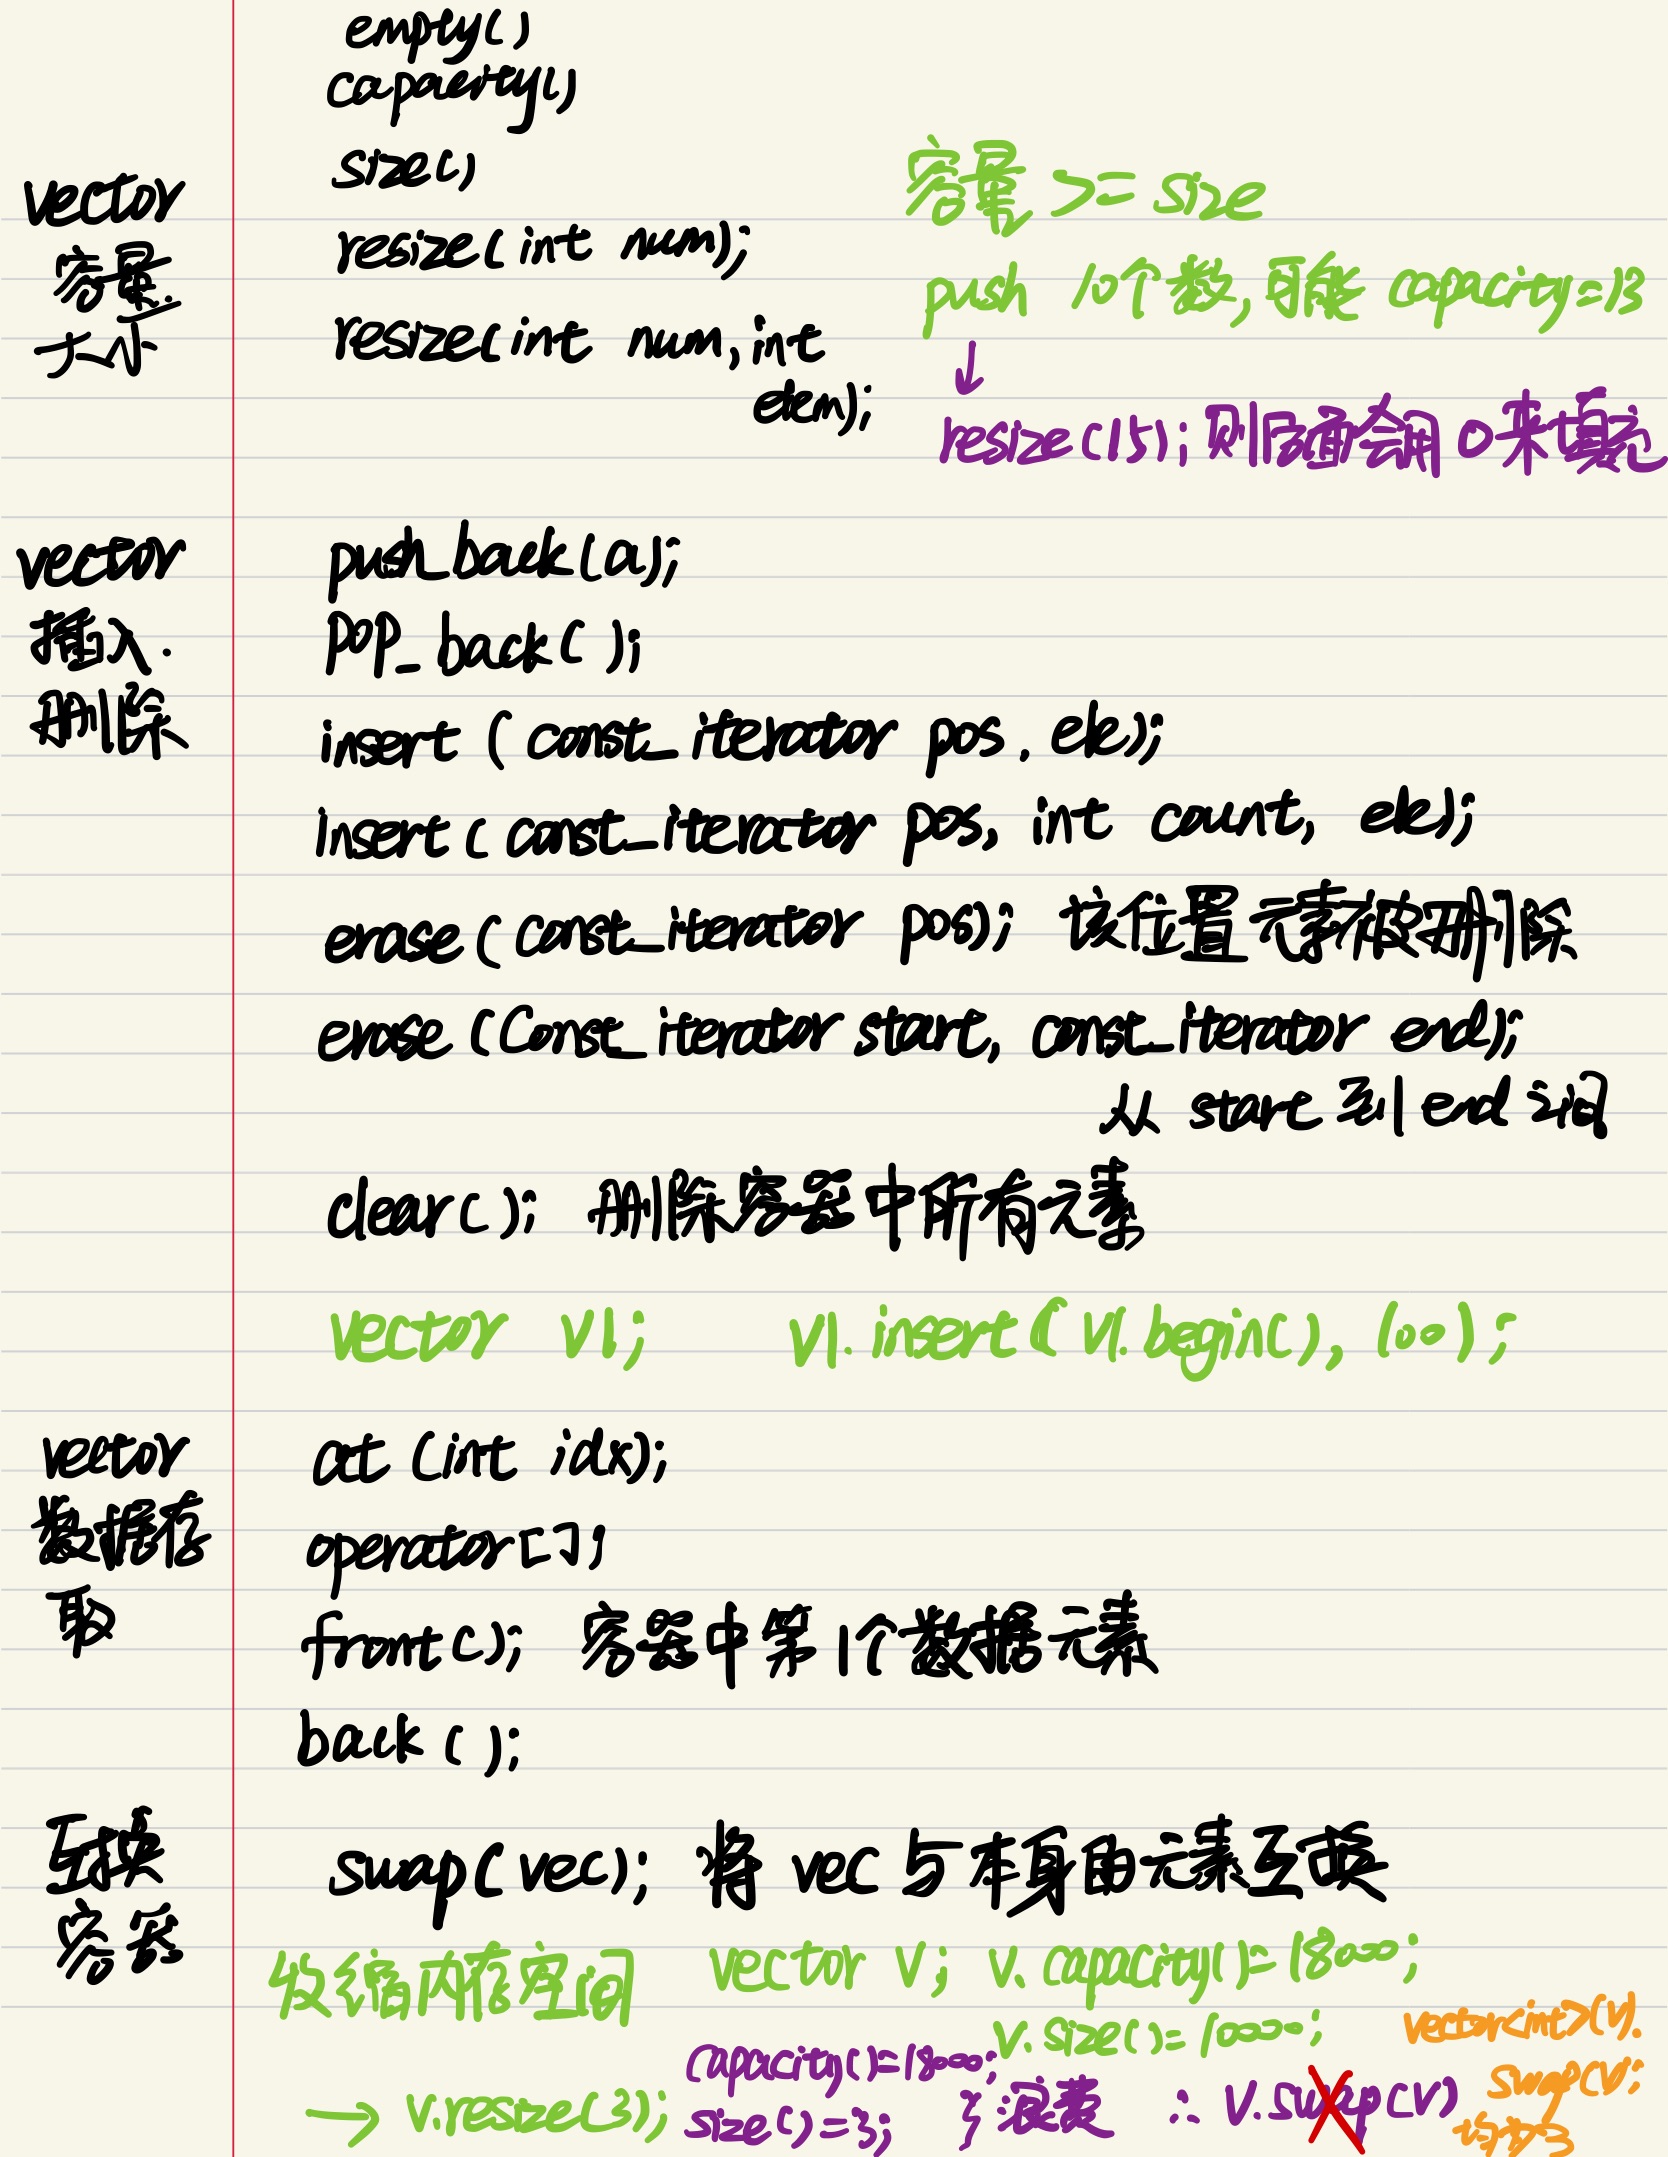 empty()
capacity()
size()
vector
容量.
大小
resize(int num);
resize(int num, int
elem);
容量 >= size
push 10个数,可能 capacity=13
↓
resize(15); 则后面会用0来填充
vector
插入.
删除
push_back(a);
pop_back();
insert (const_iterator pos, ele);
insert (const_iterator pos, int count, ele);
erase (const_iterator pos); 该位置元素被删除
erase (const_iterator start, const_iterator end);
从 start 到 end 之间
clear(); 删除容器中所有元素
vector v1; v1.insert(v1.begin(), 100);
vector
数据存
取
at (int idx);
operator[];
front(); 容器中第1个数据元素
back();
互换
容器
swap(vec); 将 vec 与本身的元素互换
收缩内存空间 vector v; v.capacity()=18000;
v.size()=10000;
→ v.resize(3);
capacity()=18000;
size()=3;
} 浪费 ∴ v.swap(v)
vector<int>(v).
swap(v);
均为3